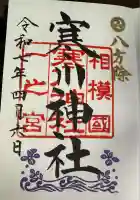 八方除
相模國
寒川神社
一之宮
令和七年四月六日